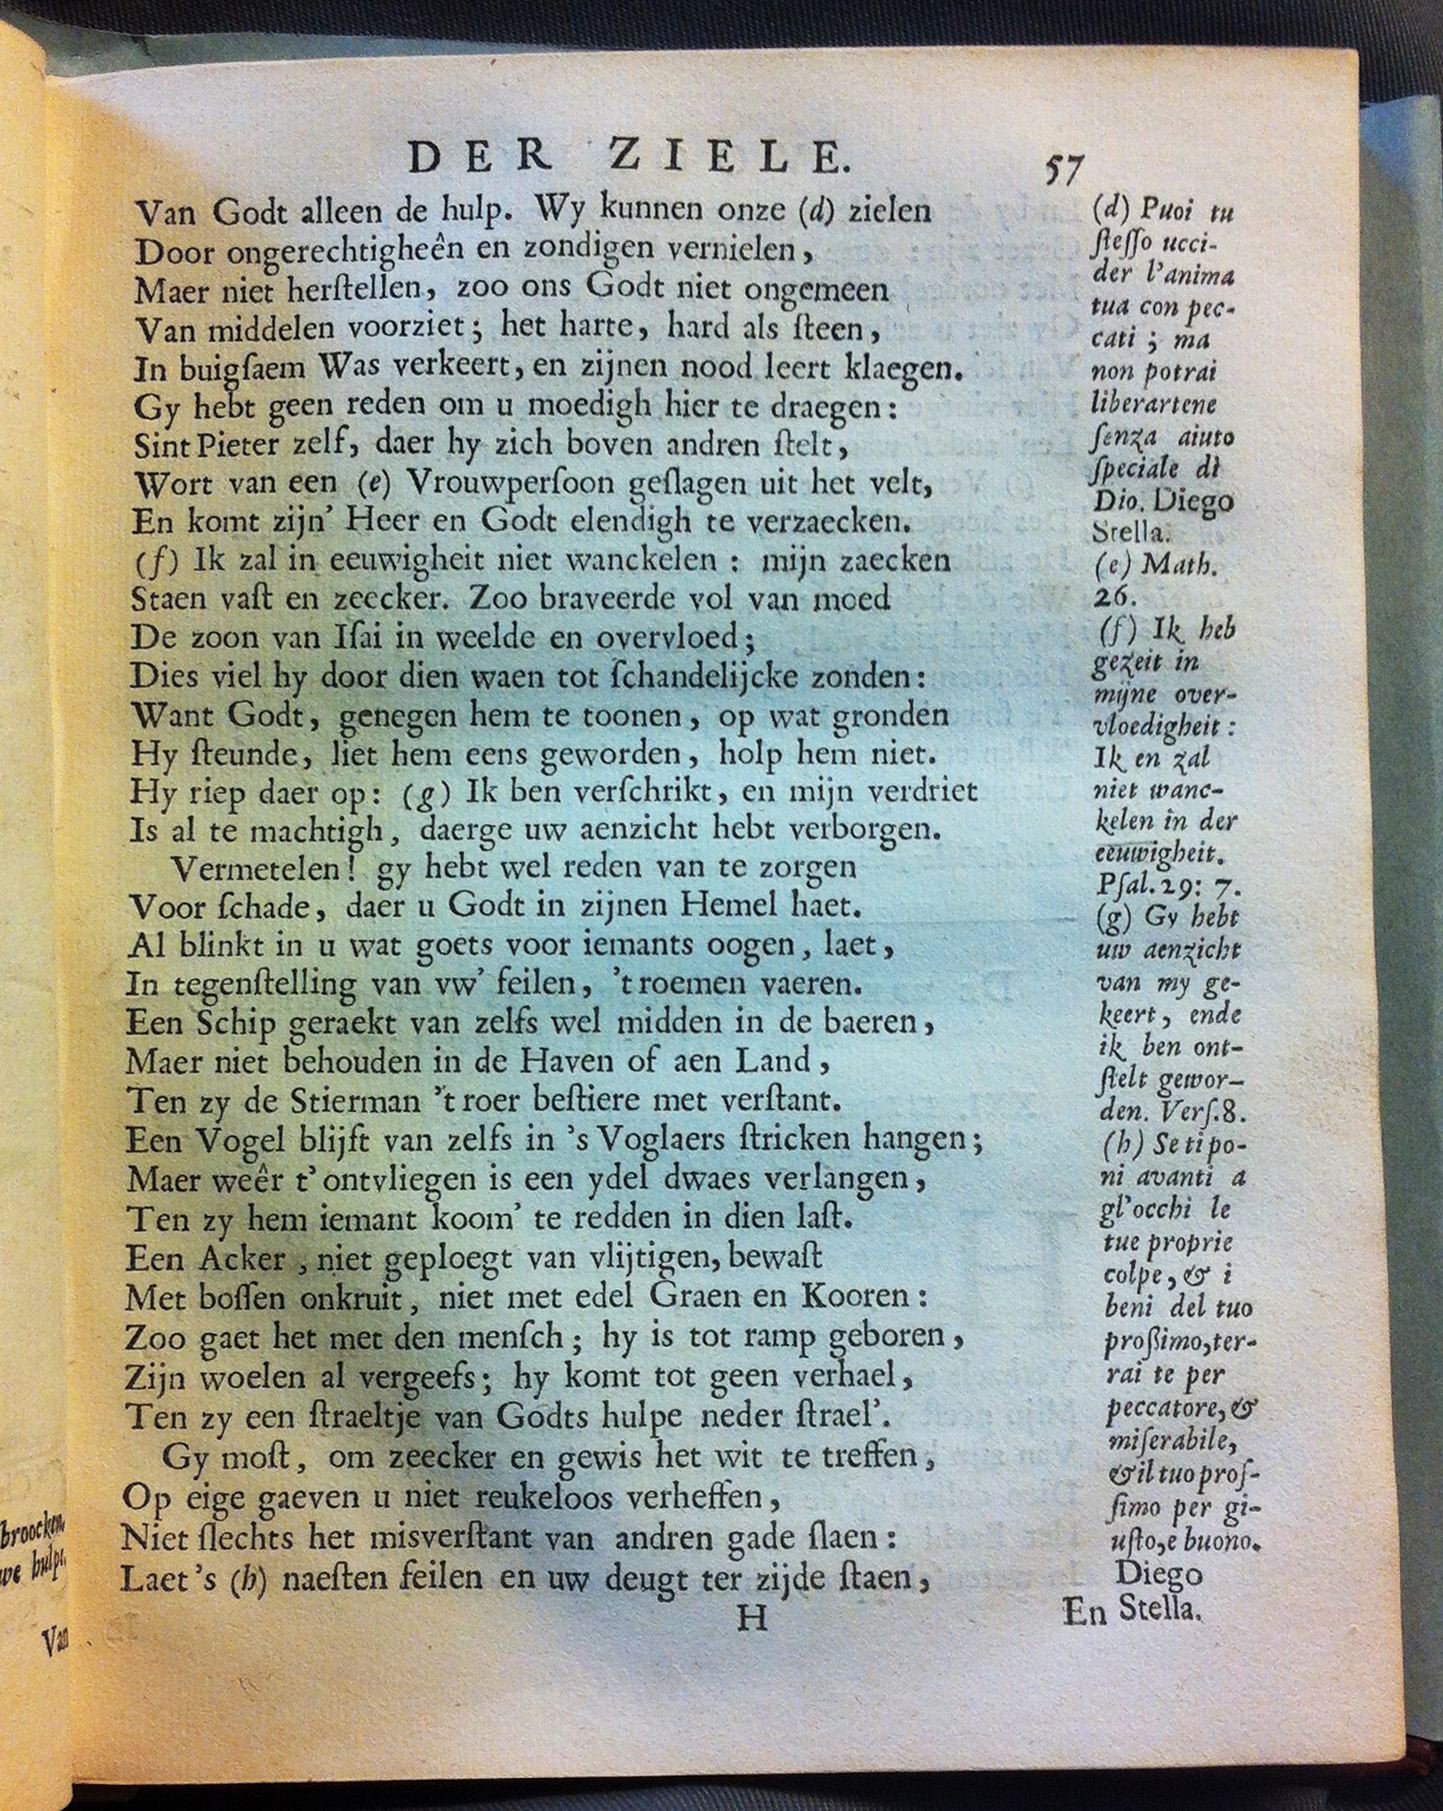 DER ZIELE. 57
Van Godt alleen de hulp. Wy kunnen onze (d) zielen
Door ongerechtigheên en zondigen vernielen,
Maer niet herſtellen, zoo ons Godt niet ongemeen
Van middelen voorziet; het harte, hard als ſteen,
In buigſaem Was verkeert, en zijnen nood leert klaegen.
Gy hebt geen reden om u moedigh hier te draegen:
Sint Pieter zelf, daer hy zich boven andren ſtelt,
Wort van een (e) Vrouwperſoon geſlagen uit het velt,
En komt zijn' Heer en Godt elendigh te verzaecken.
(f) Ik zal in eeuwigheit niet wanckelen: mijn zaecken
Staen vaſt en zeecker. Zoo braveerde vol van moed
De zoon van Iſai in weelde en overvloed;
Dies viel hy door dien waen tot ſchandelijcke zonden:
Want Godt, genegen hem te toonen, op wat gronden
Hy ſteunde, liet hem eens geworden, holp hem niet.
Hy riep daer op: (g) Ik ben verſchrikt, en mijn verdriet
Is al te machtigh, daerge uw aenzicht hebt verborgen.
Vermetelen! gy hebt wel reden van te zorgen
Voor ſchade, daer u Godt in zijnen Hemel haet.
Al blinkt in u wat goets voor iemants oogen, laet,
In tegenſtelling van vw' feilen, 't roemen vaeren.
Een Schip geraekt van zelfs wel midden in de baeren,
Maer niet behouden in de Haven of aen Land,
Ten zy de Stierman 't roer beſtiere met verſtant.
Een Vogel blijft van zelfs in 's Voglaers ſtricken hangen;
Maer weêr t' ontvliegen is een ydel dwaes verlangen,
Ten zy hem iemant koom' te redden in dien laſt.
Een Acker, niet geploegt van vlijtigen, bewaſt
Met boſſen onkruit, niet met edel Graen en Kooren:
Zoo gaet het met den menſch; hy is tot ramp geboren,
Zijn woelen al vergeefs; hy komt tot geen verhael,
Ten zy een ſtraeltje van Godts hulpe neder ſtrael'.
Gy moſt, om zeecker en gewis het wit te treffen,
Op eige gaeven u niet reukeloos verheffen,
Niet ſlechts het misverſtant van andren gade ſlaen:
Laet 's (h) naeſten feilen en uw deugt ter zijde ſtaen,
H En
(d) Puoi tu
ſteſſo ucci-
der l'anima
tua con pec-
cati; ma
non potrai
liberartene
ſenza aiuto
ſpeciale di
Dio. Diego
Stella.
(e) Math.
26.
(f) Ik heb
gezeit in
mijne over-
vloedigheit:
Ik en zal
niet wanc-
kelen in der
eeuwigheit.
Pſal. 29: 7.
(g) Gy hebt
uw aenzicht
van my ge-
keert, ende
ik ben ont-
ſtelt gewor-
den. Verſ. 8.
(h) Se ti po-
ni avanti a
gl'occhi le
tue proprie
colpe, & i
beni del tuo
proßimo, ter-
rai te per
peccatore, &
miſerabile,
& il tuo proſ-
ſimo per gi-
uſto, e buono.
Diego
Stella.
broocken,
we hulpe,
Van